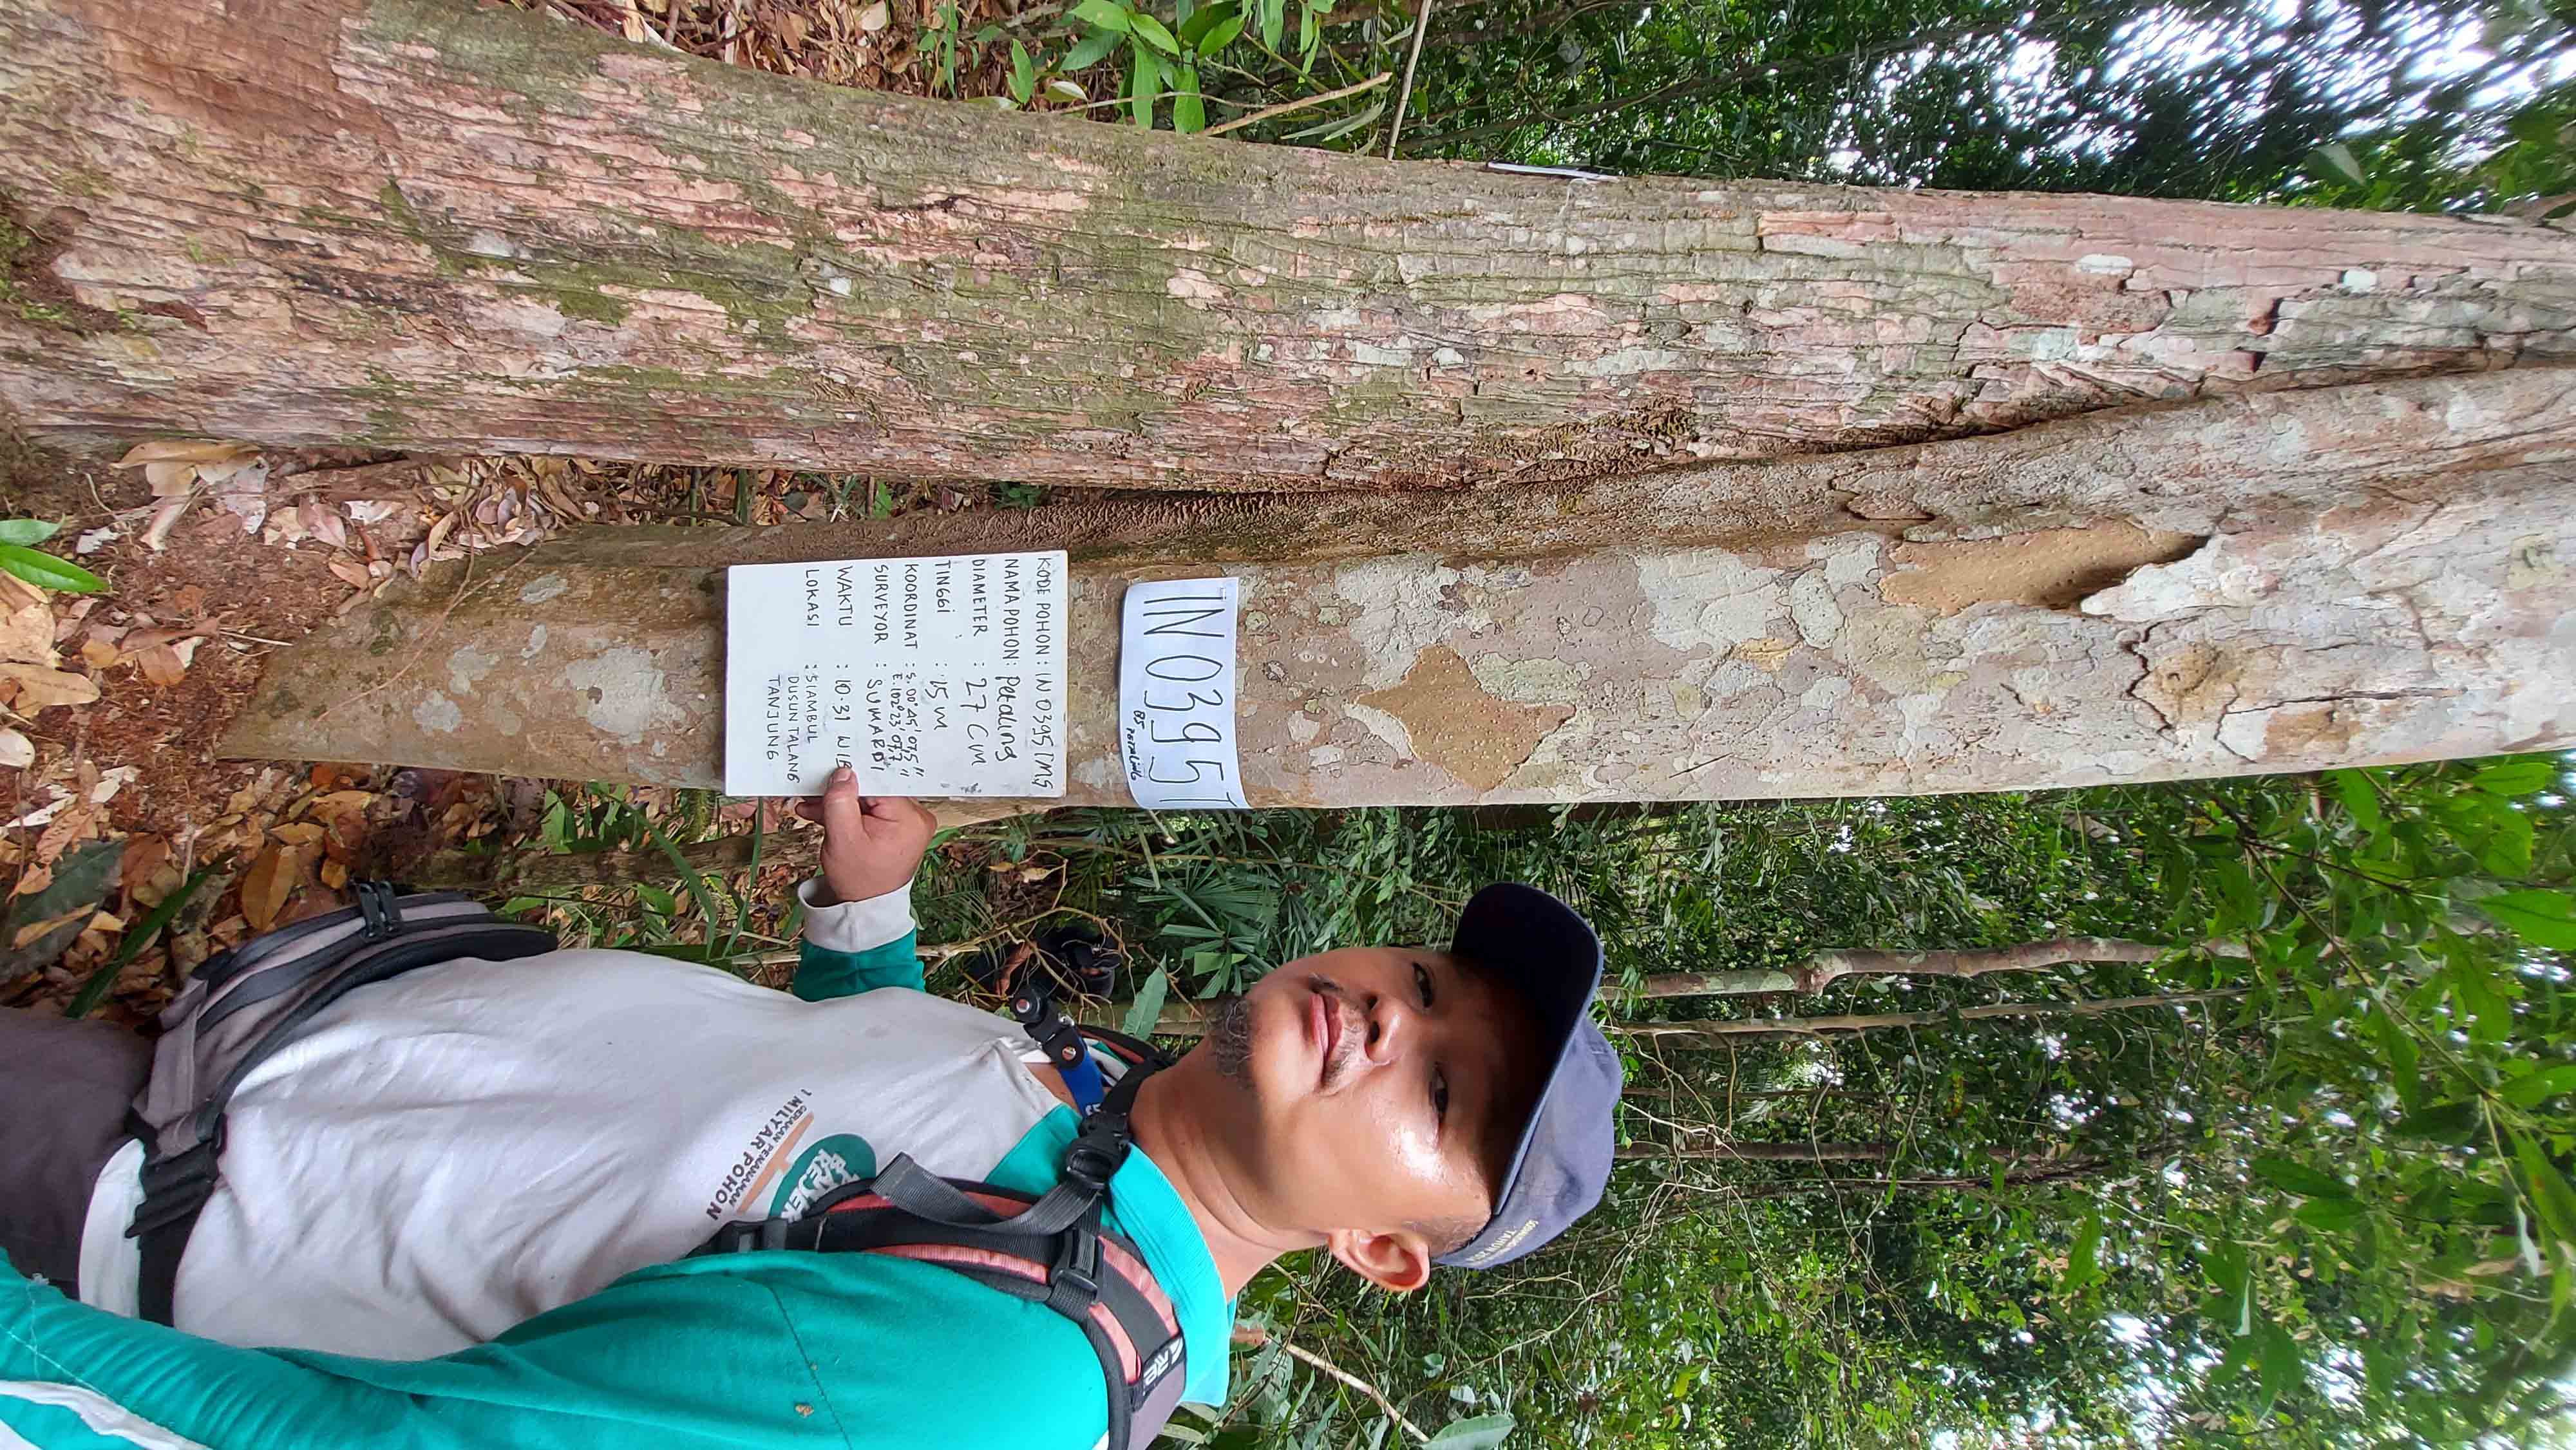 KODE POHON : IN 0395TMS
NAMA POHON : Petaling
DIAMETER : 27 CM
TINGGI : 15 M
KOORDINAT : S. 00°45'07,5"
E. 102°23'07,7"
SURVEYOR : SUMARDI
WAKTU : 10.31 WIB
LOKASI : SIAMBUL
DUSUN TALANG
TANJUNG
IN 0395T
85
PETALING
GERAKAN PENANAMAN
1 MILYAR POHON